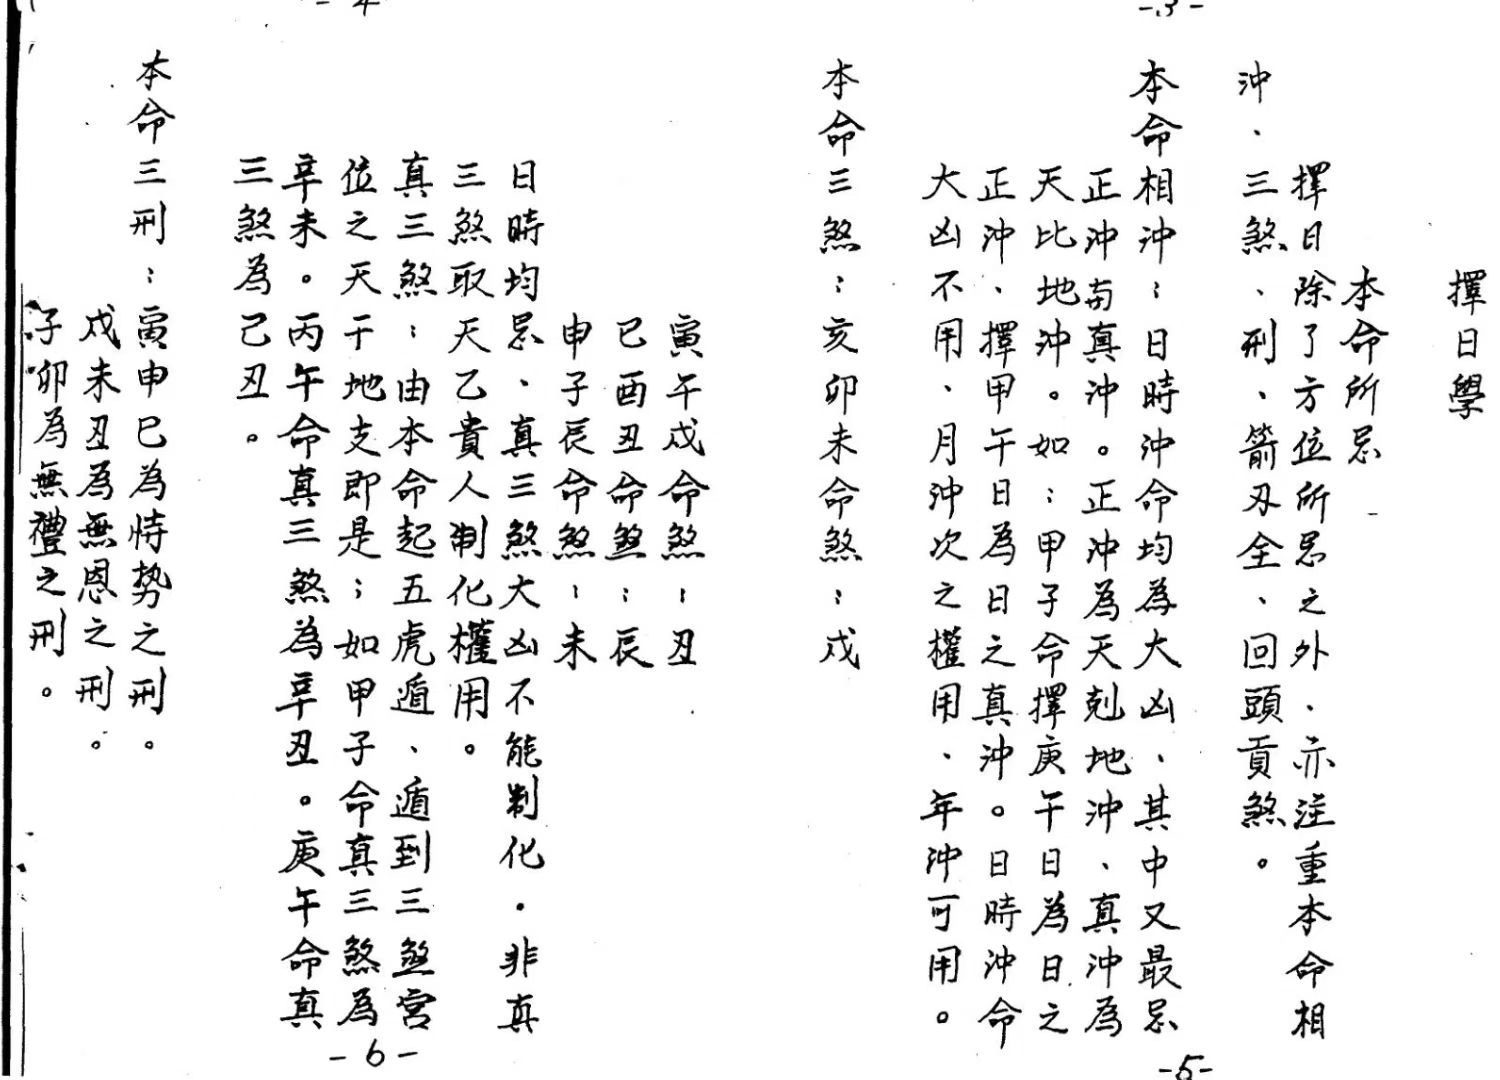 -3-
擇日學
本命所忌
擇日除了方位所忌之外、亦注重本命相
沖、三煞、刑、箭刃全、回頭貢煞。
本命相沖：日時沖命均為大凶、其中又最忌
正沖與真沖。正沖為天剋地沖、真沖為
天比地沖。如：甲子命擇庚午日為日之
正沖、擇甲午日為日之真沖。日時沖命
大凶不用、月沖次之權用、年沖可用。
本命三煞：亥卯未命煞：戍
-5-
-4
寅午戍命煞：丑
巳酉丑命煞：辰
申子辰命煞：未
日時均忌、真三煞大凶不能制化．非真
三煞取天乙貴人制化權用。
真三煞：由本命起五虎遁、遁到三煞宮
位之天干地支即是；如甲子命真三煞為
辛未。丙午命真三煞為辛丑。庚午命真
三煞為己丑。
本命三刑：寅申巳為恃势之刑。
戍未丑為無恩之刑。
子卯為無禮之刑。
-6-